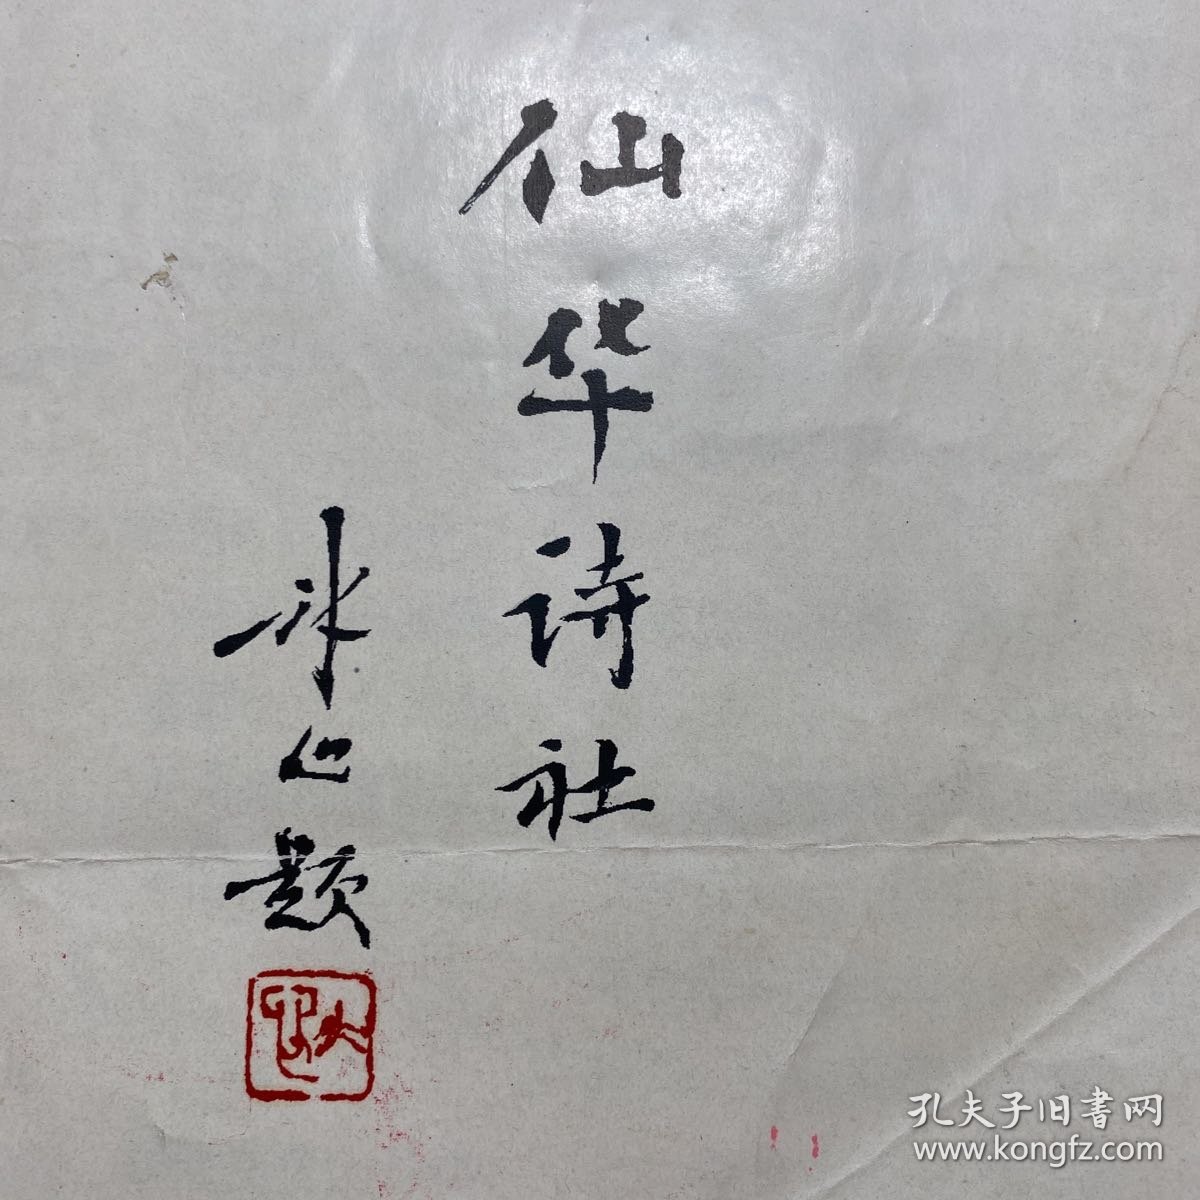 仙华诗社
冰心题
孔夫子旧書网
www.kongfz.com